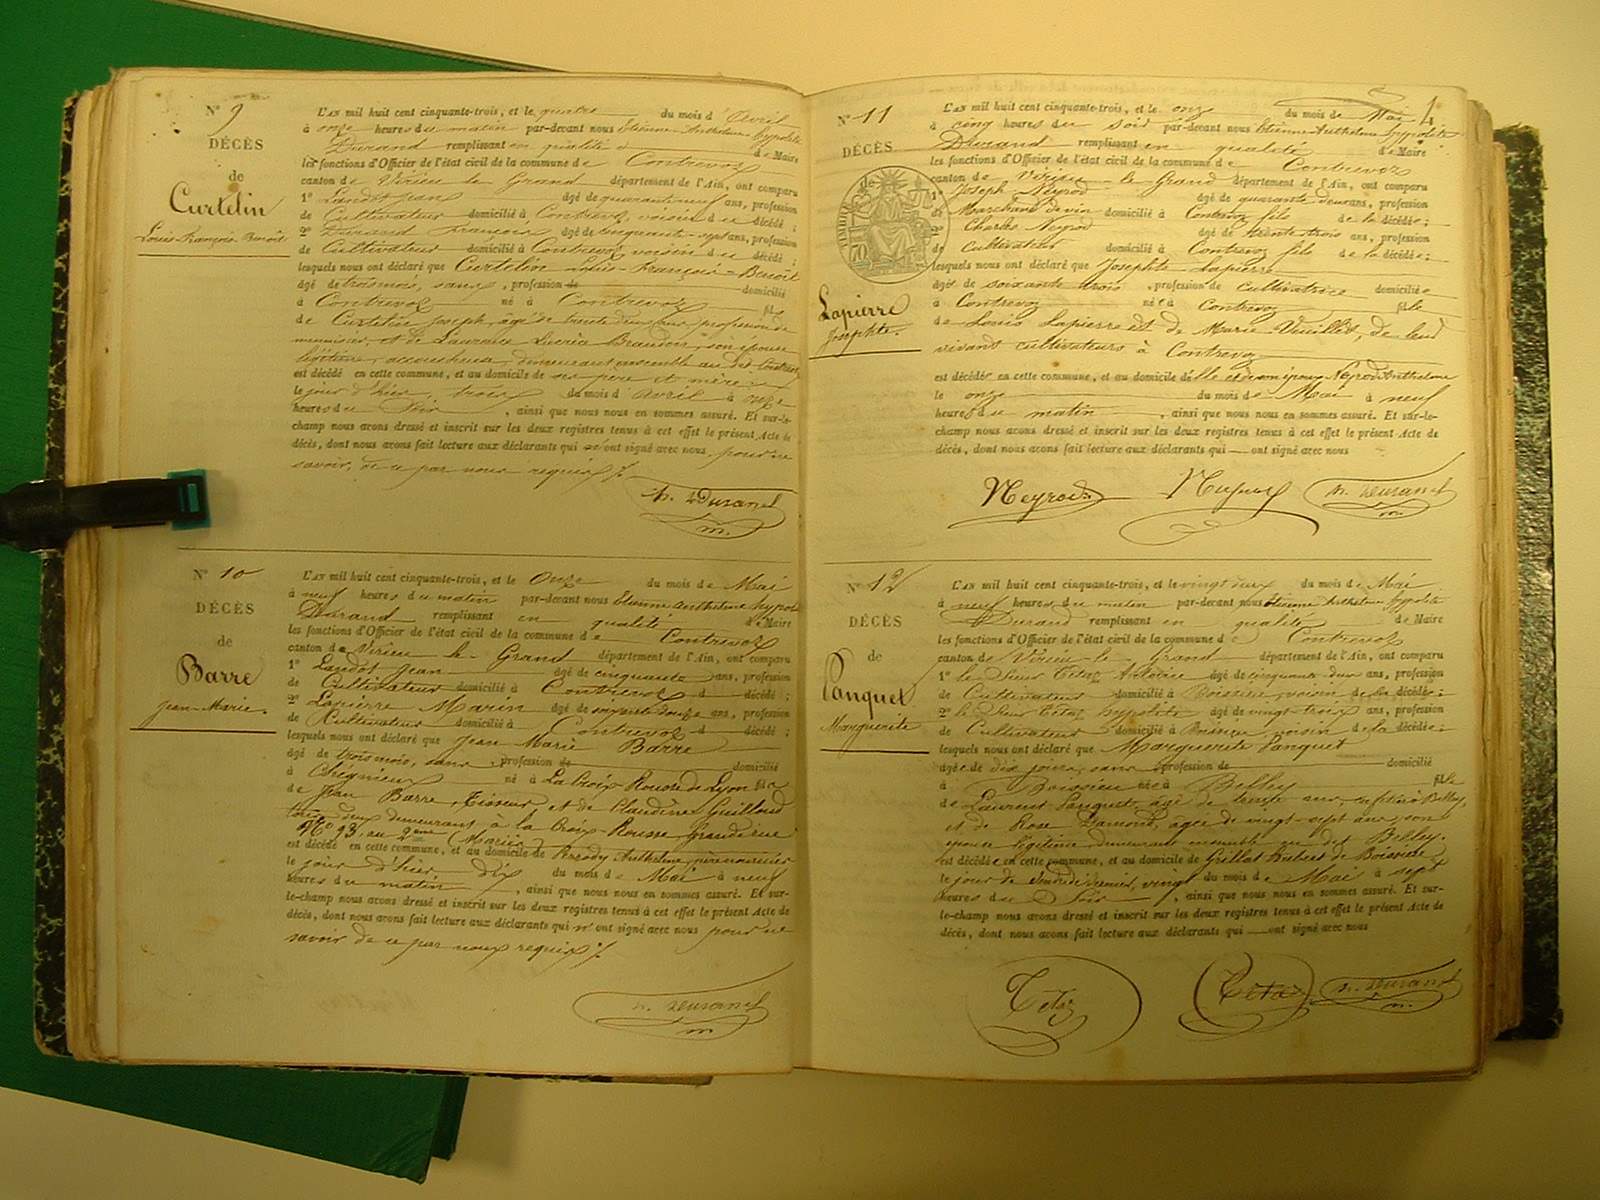 N° 9
DÉCÈS
de
Curtelin
Louis François Benoît
L'AN mil huit cent cinquante-trois, et le quatre du mois d'Avril
à onze heures du matin par-devant nous Etienne Anthelme hypolite
Durand remplissant en qualité de Maire
les fonctions d'Officier de l'état civil de la commune de Contrevoz
canton de Virieu-le-Grand département de l'Ain, ont comparu
1° Landot Jean âgé de quarante neuf ans, profession
de Cultivateur domicilié à Contrevoz, voisin du décédé ;
2° Durand François âgé de cinquante-sept ans, profession
de Cultivateur domicilié à Contrevoz voisin du décédé ;
lesquels nous ont déclaré que Curtelin Louis-François-Benoît
âgé de trois mois, sans, profession de domicilié
à Contrevoz né à Contrevoz fils
de Curtelin Joseph, âgé de trente deux ans, profession de
menuisier, et de Lucrèce Braudoir, son épouse
légitime, accoucheuse, demeurant ensemble au dit Contrevoz
est décédé en cette commune, et au domicile de ses père et mère
le jour d'hier, trois du mois d'avril à onze
heures du Soir, ainsi que nous nous en sommes assuré. Et sur-le-
champ nous avons dressé et inscrit sur les deux registres tenus à cet effet le présent Acte de
décès, dont nous avons fait lecture aux déclarants qui n'ont signé avec nous pour ne
savoir, de ce par nous requis ./.
h. Durand
m.
N° 10
DÉCÈS
de
Barre
Jean-Marie.
L'AN mil huit cent cinquante-trois, et le Onze du mois de Mai
à neuf heures du matin par-devant nous Etienne anthelme hypol
Durand remplissant en qualité de Maire
les fonctions d'Officier de l'état civil de la commune de Contrevoz
canton de Virieu-le-Grand département de l'Ain, ont comparu
1° Landot Jean âgé de cinquante ans, profession
de Cultivateur domicilié à Contrevoz d décédé ;
2° Lapierre Marin âgé de soixante douze ans, profession
de Cultivateur domicilié à Contrevoz d décédé ;
lesquels nous ont déclaré que Jean Marie Barre
âgé de trois mois, sans, profession de domicilié
à Chégnieu né à La Croix Rousse de Lyon fils
de Jean Barre, Tisseur et de Claudine Guilloud
tous deux demeurant à la Croix-Rousse grande rue
N° 93, au 2ème (Mariés)
est décédé en cette commune, et au domicile de Anthelme, père nourricier
le jour d'hier dix du mois de Mai à neuf
heures du matin, ainsi que nous nous en sommes assuré. Et sur-
le-champ nous avons dressé et inscrit sur les deux registres tenus à cet effet le présent Acte de
décès, dont nous avons fait lecture aux déclarants qui n'ont signé avec nous pour ne
savoir de ce par nous requis ./.
h. Durand
m.
4
N° 11
DÉCÈS
de
TIMBRE
70
Lapierre
Josephte.
L'AN mil huit cent cinquante-trois, et le onze du mois de Mai
à cinq heures du soir par-devant nous Etienne-Anthelme hyppolite
Durand remplissant en qualité de Maire
les fonctions d'Officier de l'état civil de la commune de Contrevoz
canton de Virieu-le-Grand département de l'Ain, ont comparu
1° Joseph Neyrod âgé de quarante deux ans, profession
de Marchand de vin domicilié à Contrevoz fils de la décédée ;
2° Charles Neyrod âgé de trente trois ans, profession
de Cultivateur domicilié à Contrevoz fils de la décédée ;
lesquels nous ont déclaré que Josephte Lapierre
âgée de soixante trois, profession de cultivatrice domiciliée
à Contrevoz née à Contrevoz fille
de Louis Lapierre et de Marie Vuillet, de leur
vivant cultivateurs à Contrevoz
est décédée en cette commune, et au domicile d'elle et de son époux Neyrod Anthelme
le onze du mois de Mai à neuf
heures du matin, ainsi que nous nous en sommes assuré. Et sur-le-
champ nous avons dressé et inscrit sur les deux registres tenus à cet effet le présent Acte de
décès, dont nous avons fait lecture aux déclarants qui ont signé avec nous
Neyrod h. Durand
m.
N° 12
DÉCÈS
de
Panquet
Marguerite
L'AN mil huit cent cinquante-trois, et le vingt deux du mois de Mai
à neuf heures du matin par-devant nous Etienne Anthelme hyppolite
Durand remplissant en qualité de Maire
les fonctions d'Officier de l'état civil de la commune de Contrevoz
canton de Virieu-le-Grand département de l'Ain, ont comparu
1° le Sieur Tétaz Antoine âgé de cinquante deux ans, profession
de Cultivateur domicilié à Boissieu, voisin de la décédée ;
2° le Sieur Tétaz hypolite âgé de vingt-trois ans, profession
de Cultivateur domicilié à Boissieu, voisin de la décédée ;
lesquels nous ont déclaré que Marguerite Panquet
âgée de dix jours, sans profession de domicilié
à Boissieu née à Belley fille
de Laurent Panquet, âgé de trente ans, à Belley,
et de Rose Diamond, âgée de vingt-sept ans, son
épouse légitime demeurant ensemble au dit Belley.
est décédée en cette commune, et au domicile de Grillot Hubert de Boissieu
le jour de vendredi dernier, vingt du mois de Mai à sept
heures du Soir, ainsi que nous nous en sommes assuré. Et sur-
le-champ nous avons dressé et inscrit sur les deux registres tenus à cet effet le présent Acte de
décès, dont nous avons fait lecture aux déclarants qui ont signé avec nous
Tétaz Tétaz h. Durand
m.